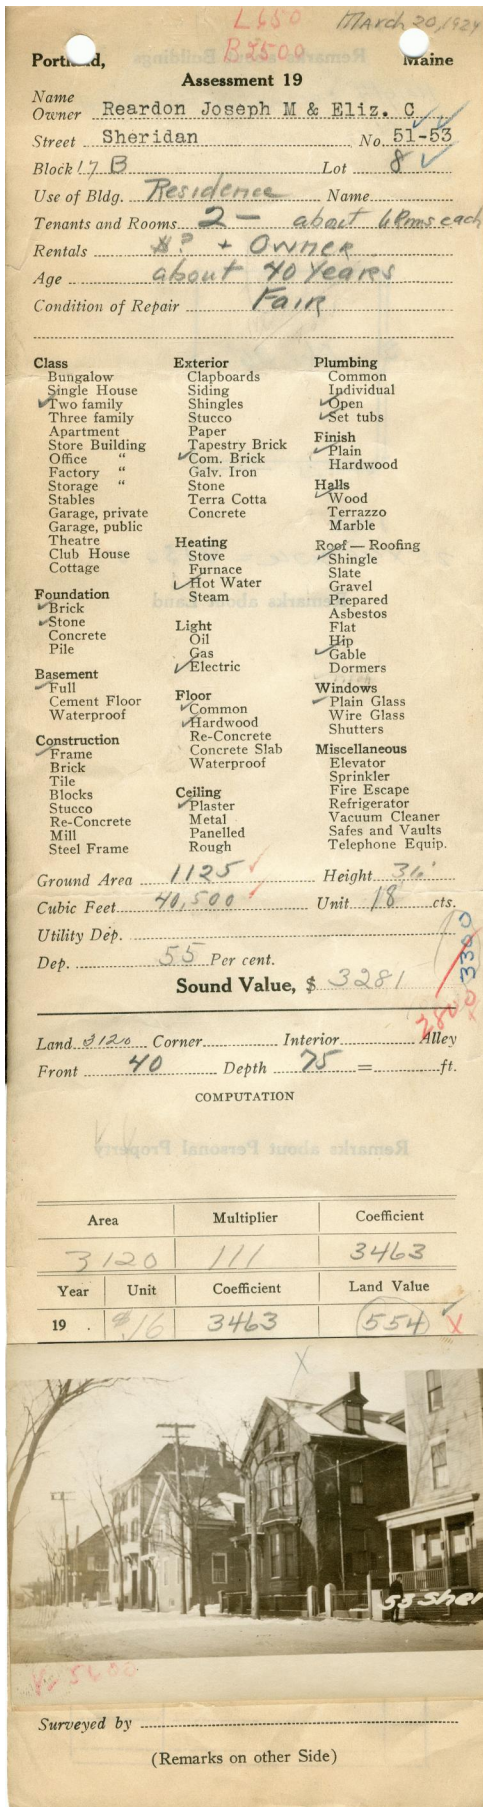 L650 March 20, 1924
B2500
Portland, Maine
Assessment 19
Name
Owner Reardon Joseph M & Eliz. C
Street Sheridan No. 51-53
Block 17 B Lot 8
Use of Bldg. Residence Name
Tenants and Rooms 2 — about 6 Rms each
Rentals $? + Owner
Age about 40 Years
Condition of Repair Fair
Class
Bungalow
Single House
✓Two family
Three family
Apartment
Store Building
Office "
Factory "
Storage "
Stables
Garage, private
Garage, public
Theatre
Club House
Cottage
Foundation
✓Brick
✓Stone
Concrete
Pile
Basement
✓Full
Cement Floor
Waterproof
Construction
✓Frame
Brick
Tile
Blocks
Stucco
Re-Concrete
Mill
Steel Frame
Exterior
Clapboards
Siding
Shingles
Stucco
Paper
Tapestry Brick
✓Com. Brick
Galv. Iron
Stone
Terra Cotta
Concrete
Heating
Stove
Furnace
✓Hot Water
Steam
Light
Oil
Gas
✓Electric
Floor
✓Common
✓Hardwood
Re-Concrete
Concrete Slab
Waterproof
Ceiling
✓Plaster
Metal
Panelled
Rough
Plumbing
Common
Individual
✓Open
✓Set tubs
Finish
✓Plain
Hardwood
Halls
✓Wood
Terrazzo
Marble
Roof — Roofing
✓Shingle
Slate
Gravel
Prepared
Asbestos
Flat
Hip
✓Gable
Dormers
Windows
✓Plain Glass
Wire Glass
Shutters
Miscellaneous
Elevator
Sprinkler
Fire Escape
Refrigerator
Vacuum Cleaner
Safes and Vaults
Telephone Equip.
Ground Area 1125 Height 36'
Cubic Feet 40,500 Unit 18 cts.
Utility Dep.
Dep. 55 Per cent.
3300
Sound Value, $ 3281
2800
Land 3120 Corner Interior Alley
Front 40 Depth 75 = ft.
COMPUTATION
Area Multiplier Coefficient
3120 111 3463
Year Unit Coefficient Land Value
19 . $.16 3463 554 ✓ X
X
53 Sher
Surveyed by
(Remarks on other Side)